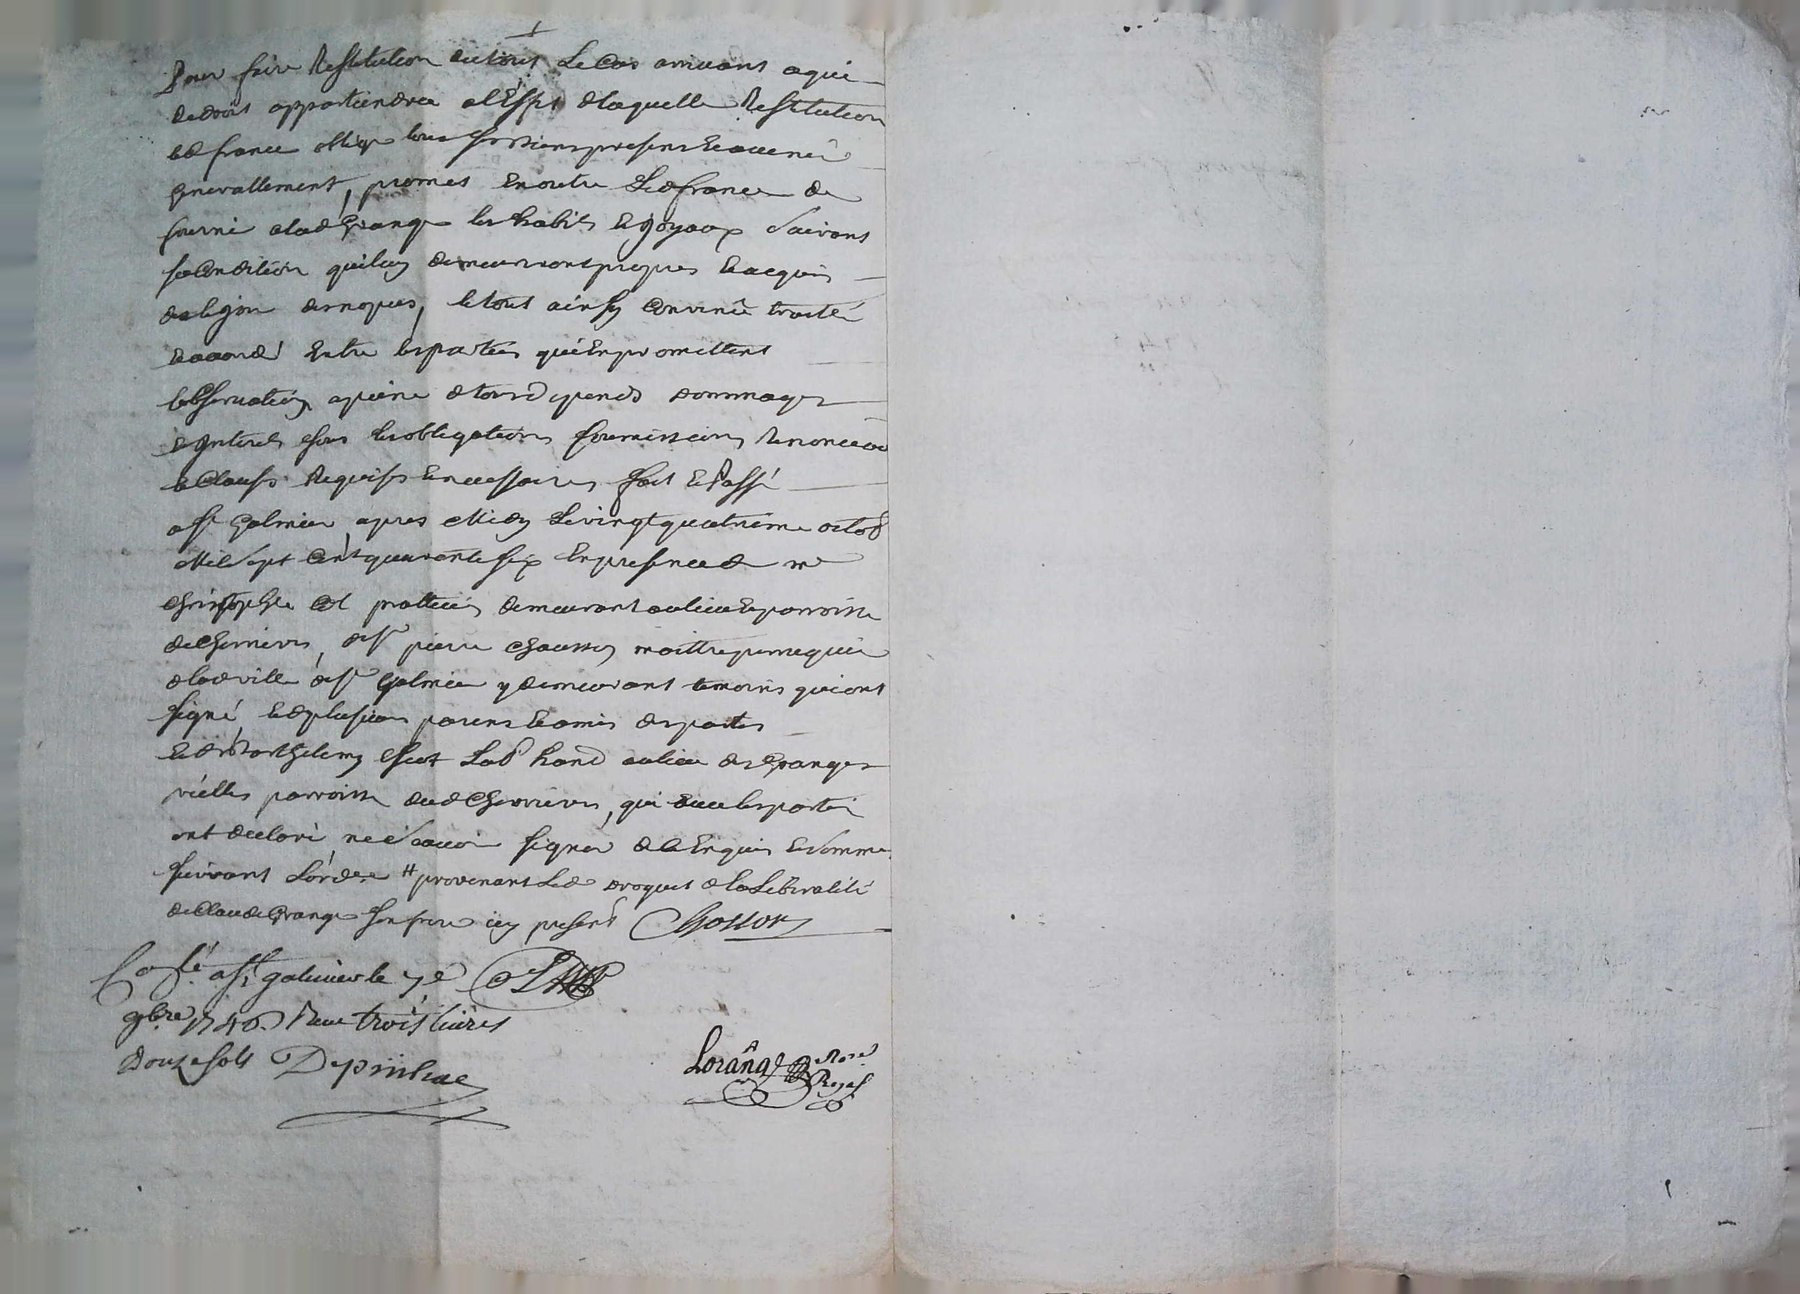 Pour faire Restitution du tout Le Cas arrivant a qui
de droit appartiendra a l'Effet de laquelle Restitution
led france oblige tous ses biens presens et avenir
generallement, promet en outre Led france de
fournir a lad Grange les habits et joyaux suivant
sa Condition qui luy demeurront propres et acquis
le tout ainsy Convenu traité
et accordé Entre les parties qui En promettent
l'observation a peine de tous depends dommages
et interets sous les obligations soumissions Renonciaõn
et Clauses Requises et necessaires fait et Passé
a St Galmier apres Midy Le vingt quatrieme octob
Mil Sept Cent quarante six En presence de me
Christophe Col praticien demeurant au lieu et parroisse
de Chevrieres, et de Sr pierre maitre perruquier
de lad ville de St Galmier y demeurant temoins qui ont
signé, et de plusieurs parens et amis des parties
et de Barthelemy Lab au lieu des Granges
vielles parroisse dud Chevrieres, qui avec les parties
ont declaré ne Scavoir signer de ce Enquis et Sommé
suivant L'ord.ce # provenant Led de la Liberalité
de Claude Grange son frere icy present
Con.lé a St galmier le 7e Col
9bre 1746. Reçu trois livres
douze sols
Lorange No.re Royal